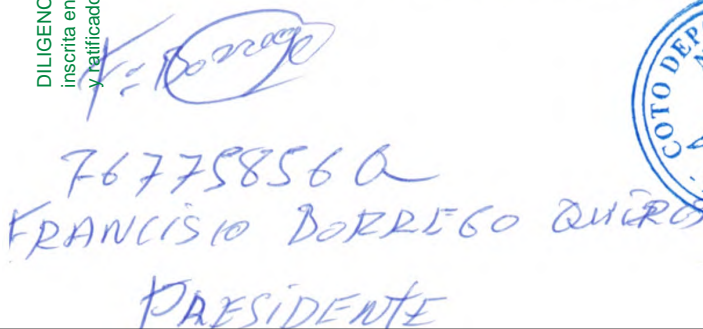 DILIGENC
inscrita en
y ratificado
F: Borrego
76775856Q
FRANCISIO BORREGO QUIRÓS
PRESIDENTE
COTO DEP